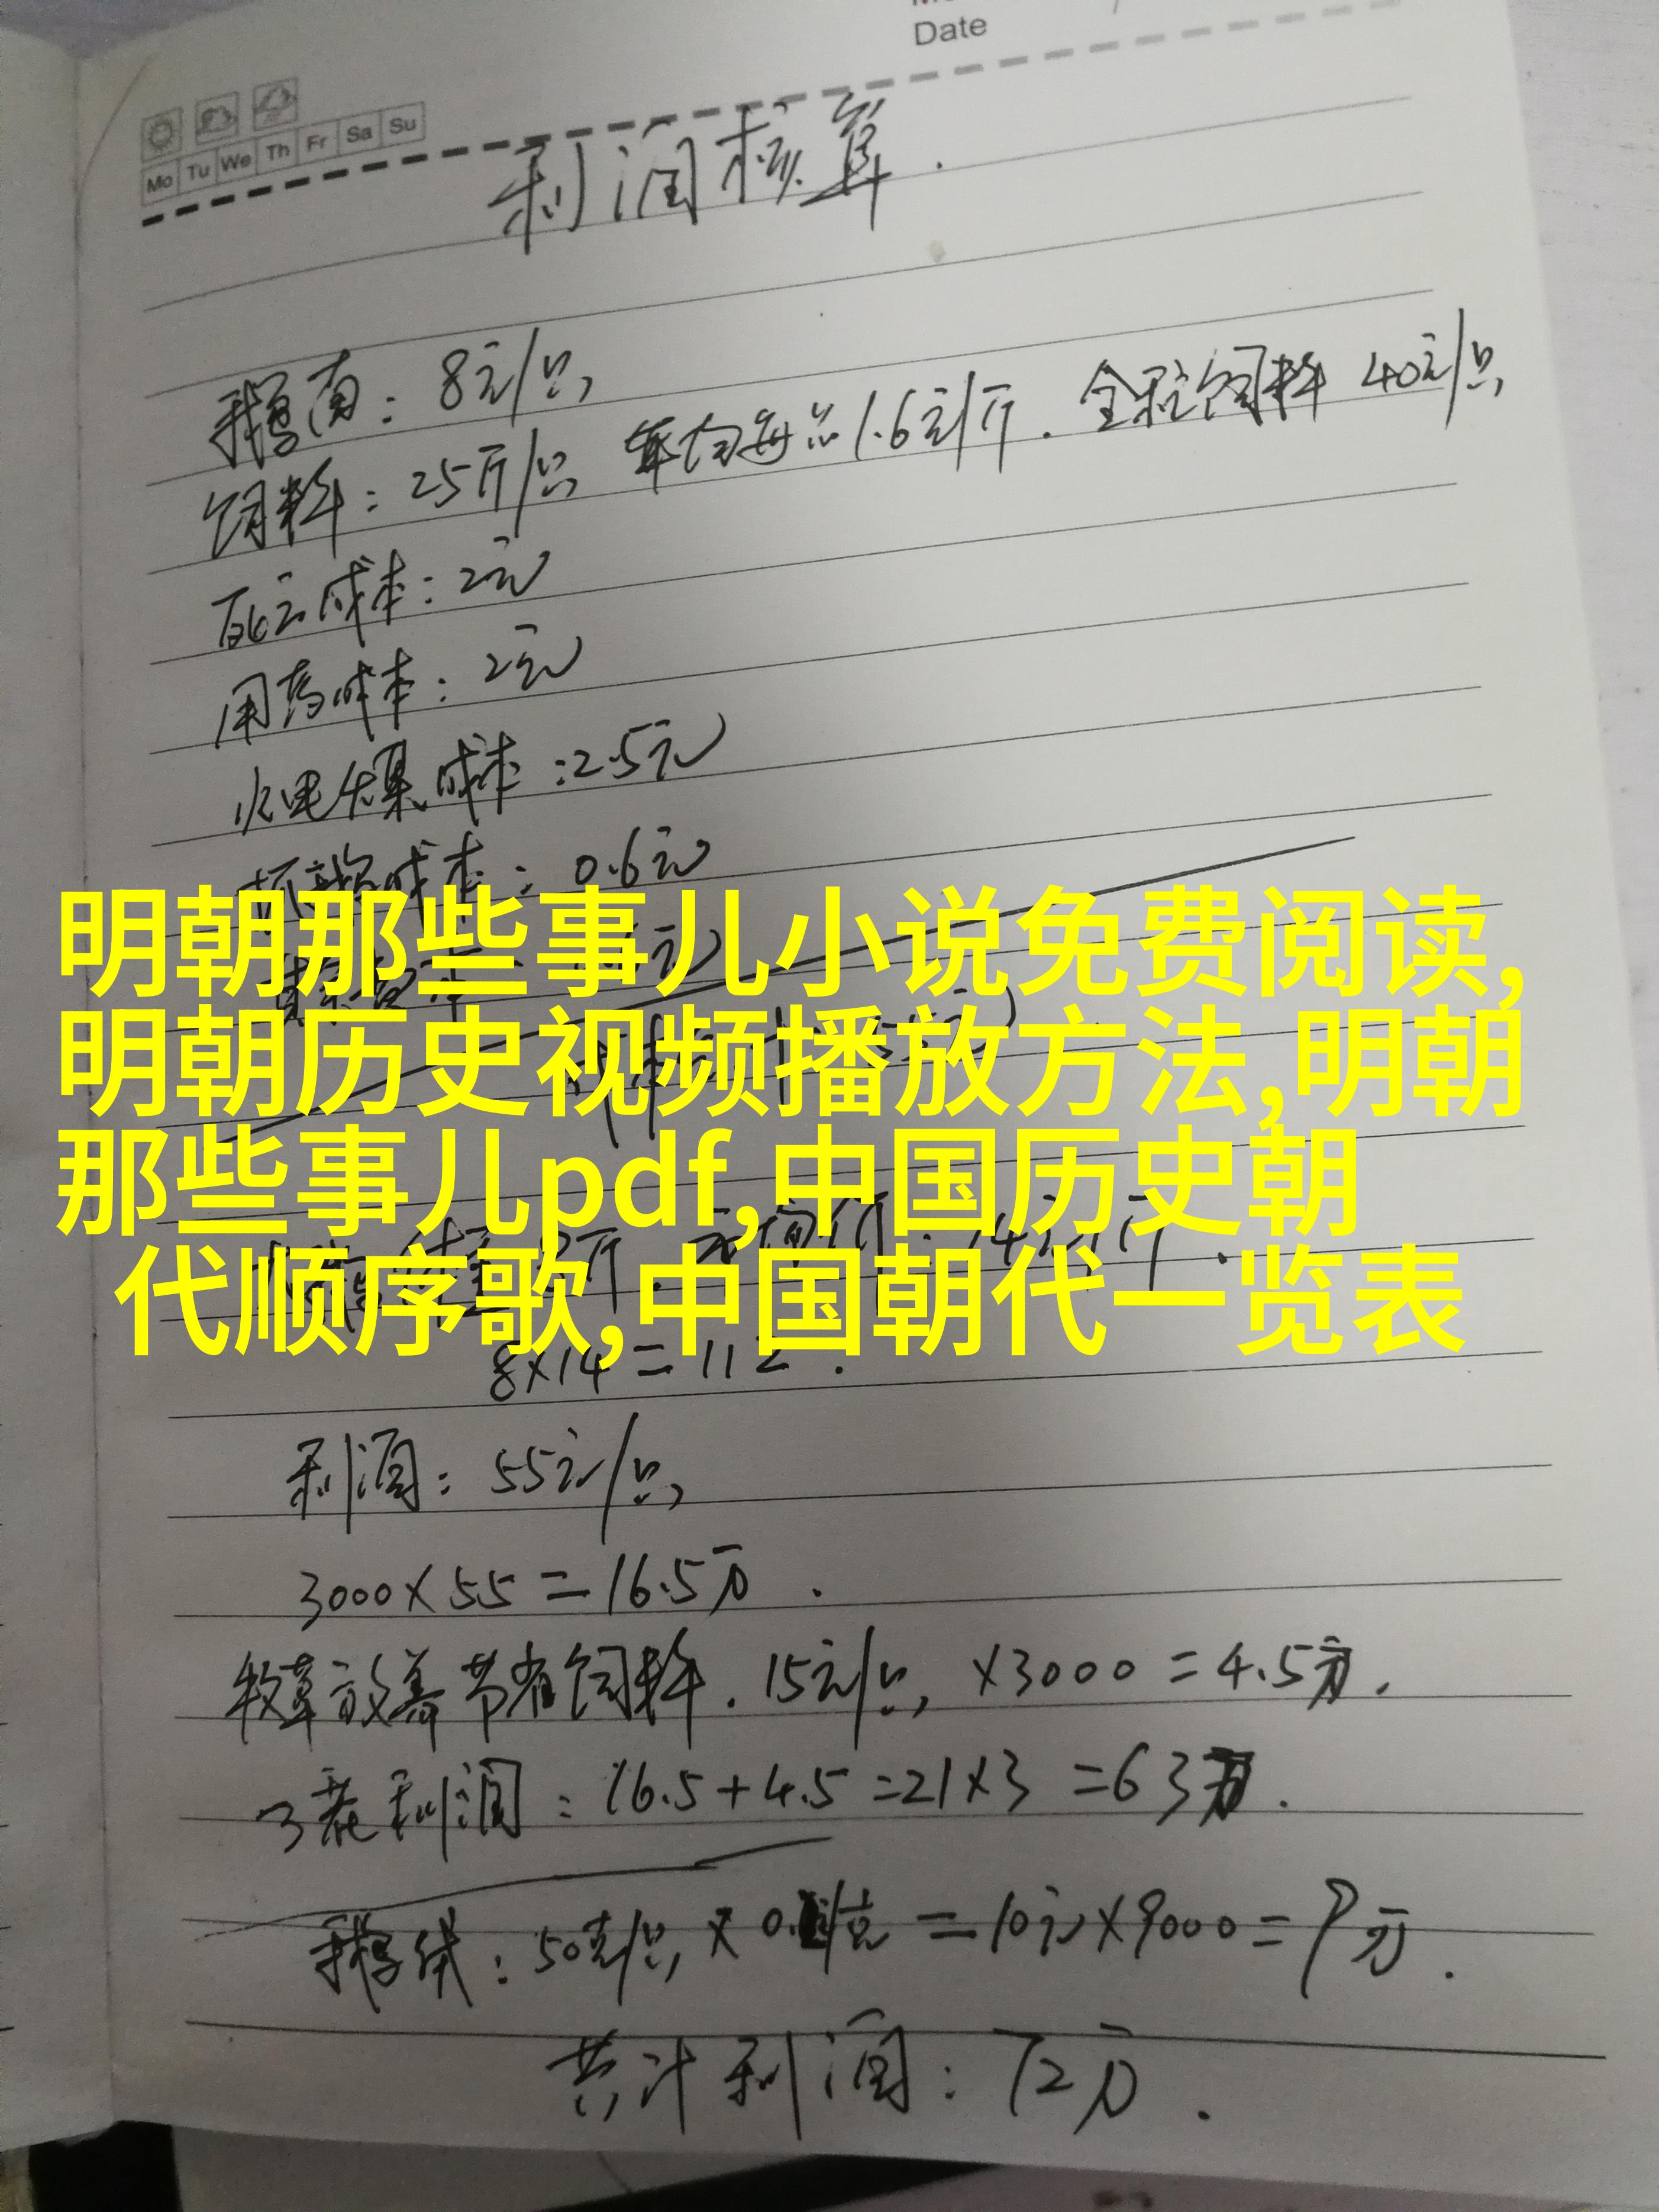 Date
Mo Tu We Th Fr Sa Su
利润核算.
鹅苗: 8元/只,
饲料: 25斤/只 平均每斤1.6元/斤. 全程饲料 40元/只
死亡成本: 2元
用药成本: 2元
水电煤成本: 2.5元
成本: 0.6元
明朝那些事儿小说免费阅读,
明朝历史视频播放方法,明朝
那些事儿pdf,中国历史朝
代顺序歌,中国朝代一览表
8×14=112.
利润: 55元/只,
3000×55=16.5万.
牧草放养节省饲料. 15元/只, ×3000=4.5万.
3茬利润: 16.5+4.5=21×3=63万.
鹅绒: 50克/只, × 0. /克 =10元×9000=9万.
共计利润: 72万.